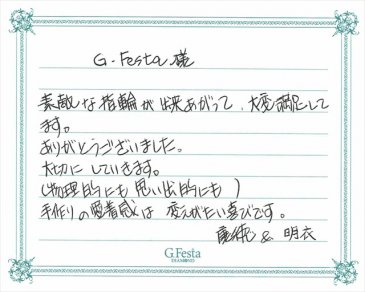 G.Festa 様
素敵な指輪が出来あがって、大変満足して
ます。
ありがとうございました。
大切にしていきます。
(物理的にも思い出的にも)
手作りの愛着感は変えがたい喜びです。
& 明衣
G.Festa
DIAMOND